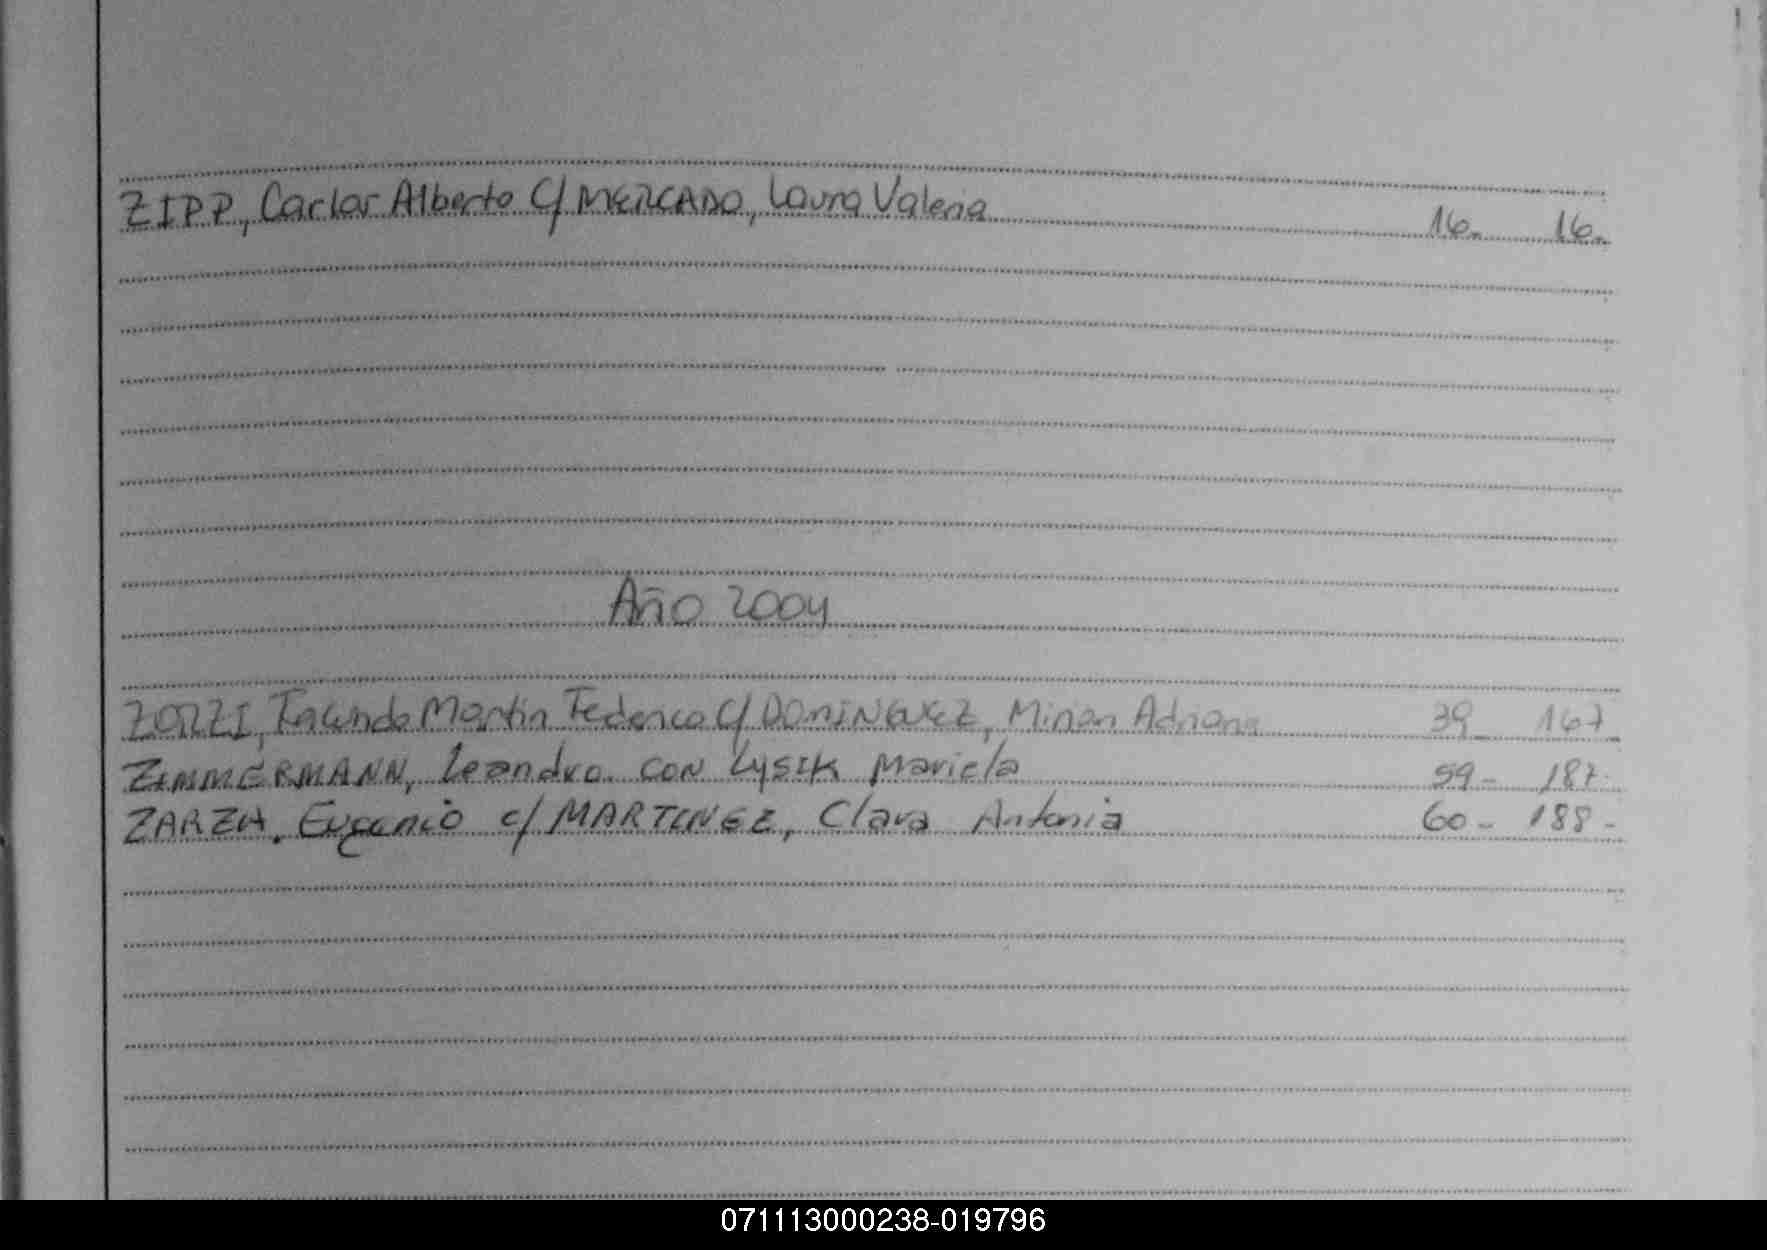 ZIPP, Carlos Alberto C/ MERCADO, Laura Valeria 16.- 16.-
Año 2004
ZORZZI, Facundo Martin Federico C/ DOMINGUEZ, Mirian Adriana 39 - 167
ZIMMERMANN, Leandro con LYSIK Mariela 59 - 187-
ZARZA, Eugenio c/ MARTINEZ, Clara Antonia 60 - 188 -
071113000238-019796